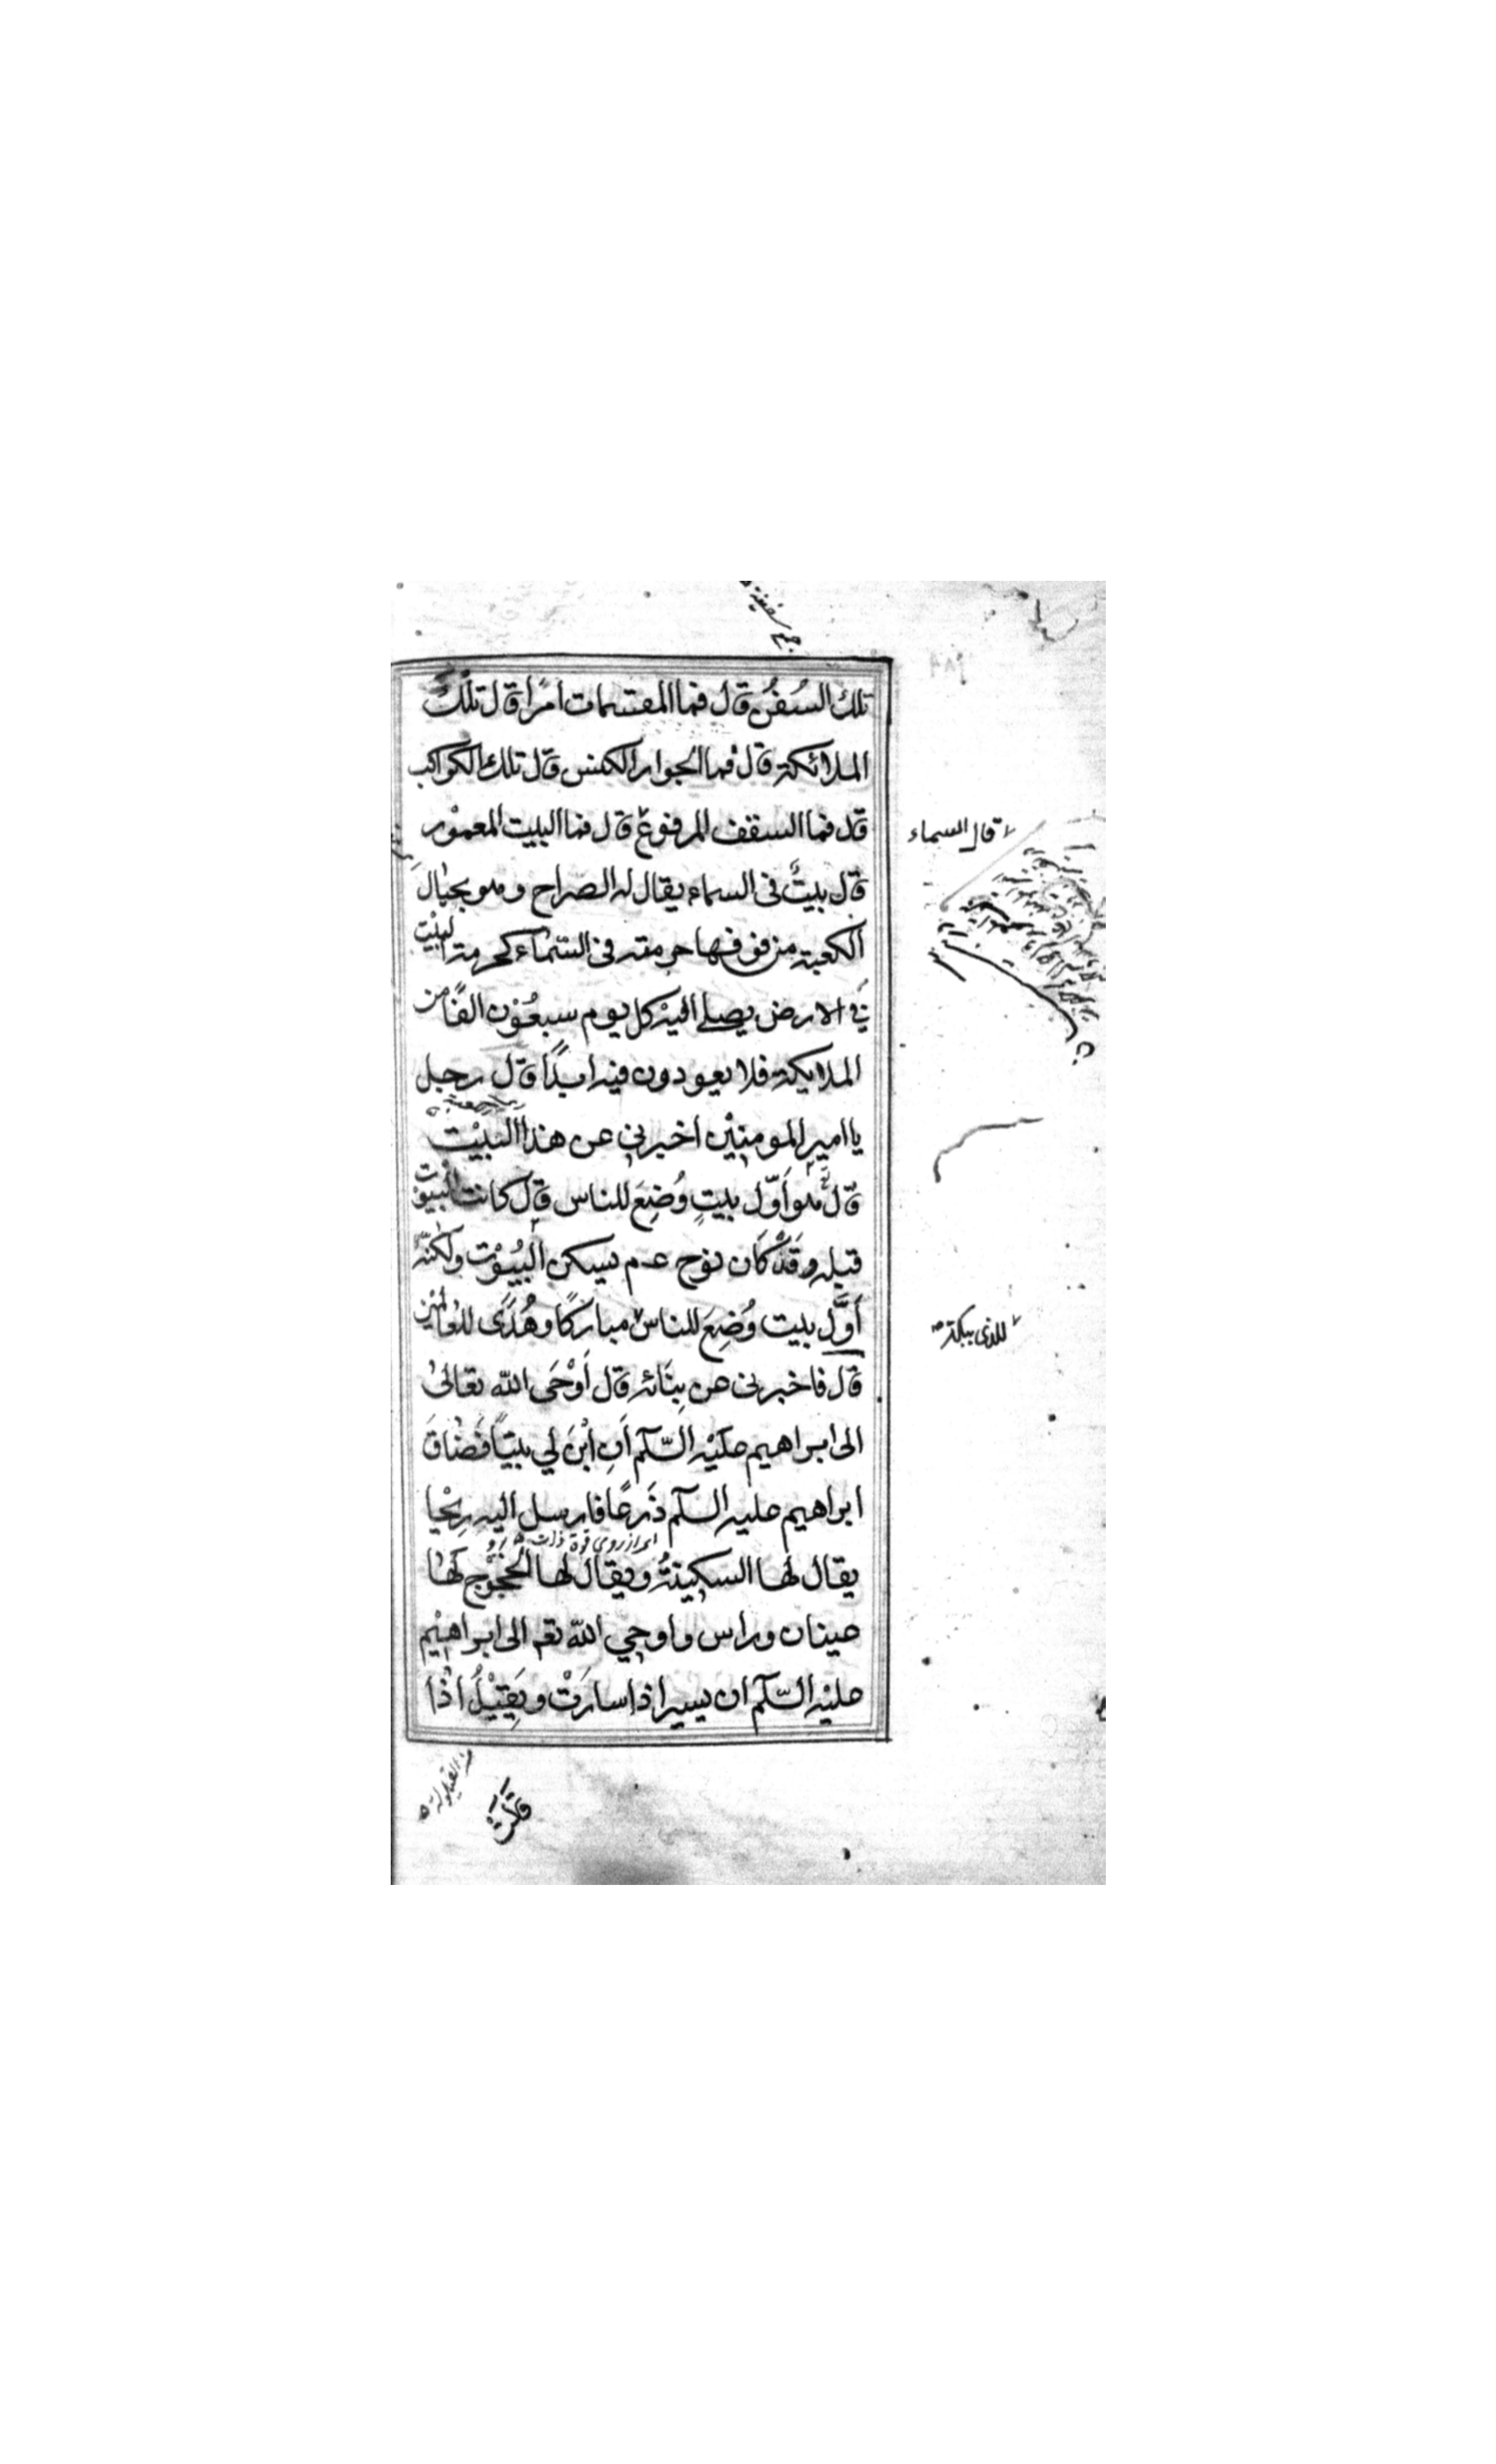 تلك السُفُن قال فما المقسمات امرًا قال تلك
الملائكة قال فما الجوار الكنس قال تلك الكواكب
قال فما السقف المرفوع قال فما البيت المعمور
قال السماء
قال بيتٌ فى السماء يقال له الصراح وهو بحيال
الكعبة من فوقها حرمته فى السّماء كحرمة البيْت
في الارض يصلے فيه كل يوم سبعُوْن الفًا من
الملايكة فلا يعودون فيه ابدًا قال رجل
يا امير المومنين اخبرني عن هذا البيْت
قال هو اَوّل بيتٍ وُضِعَ للناس قال كانت البيوت
قبله وقَدْ كَان نوح عـم يسكن البُيُوْت ولكنّه
اَوَّل بيت وُضِعَ للناس مباركًا وهُدًى للعالمين
للذى ببكة
قال فاخبرنى عن بِنَائه قال اَوْحَى اللّه تعالىٰ
الى ابراهيم عليْه السّلام اَنِ ابْنَ لي بيتًا فَضَاقَ
ابراهيم عليه السلام ذَرعًا فارسل اليه رِيْحا
يقال لها السكينةُ ويقال لها الخَجُوْج لَهَا
عينان وراس واوحي اللّه تعـ الى ابراهيْم
عليْه السّلام ان يسير اذا سارَتْ ويَقِيْلُ اذا
من القيلولة
قالَتْ